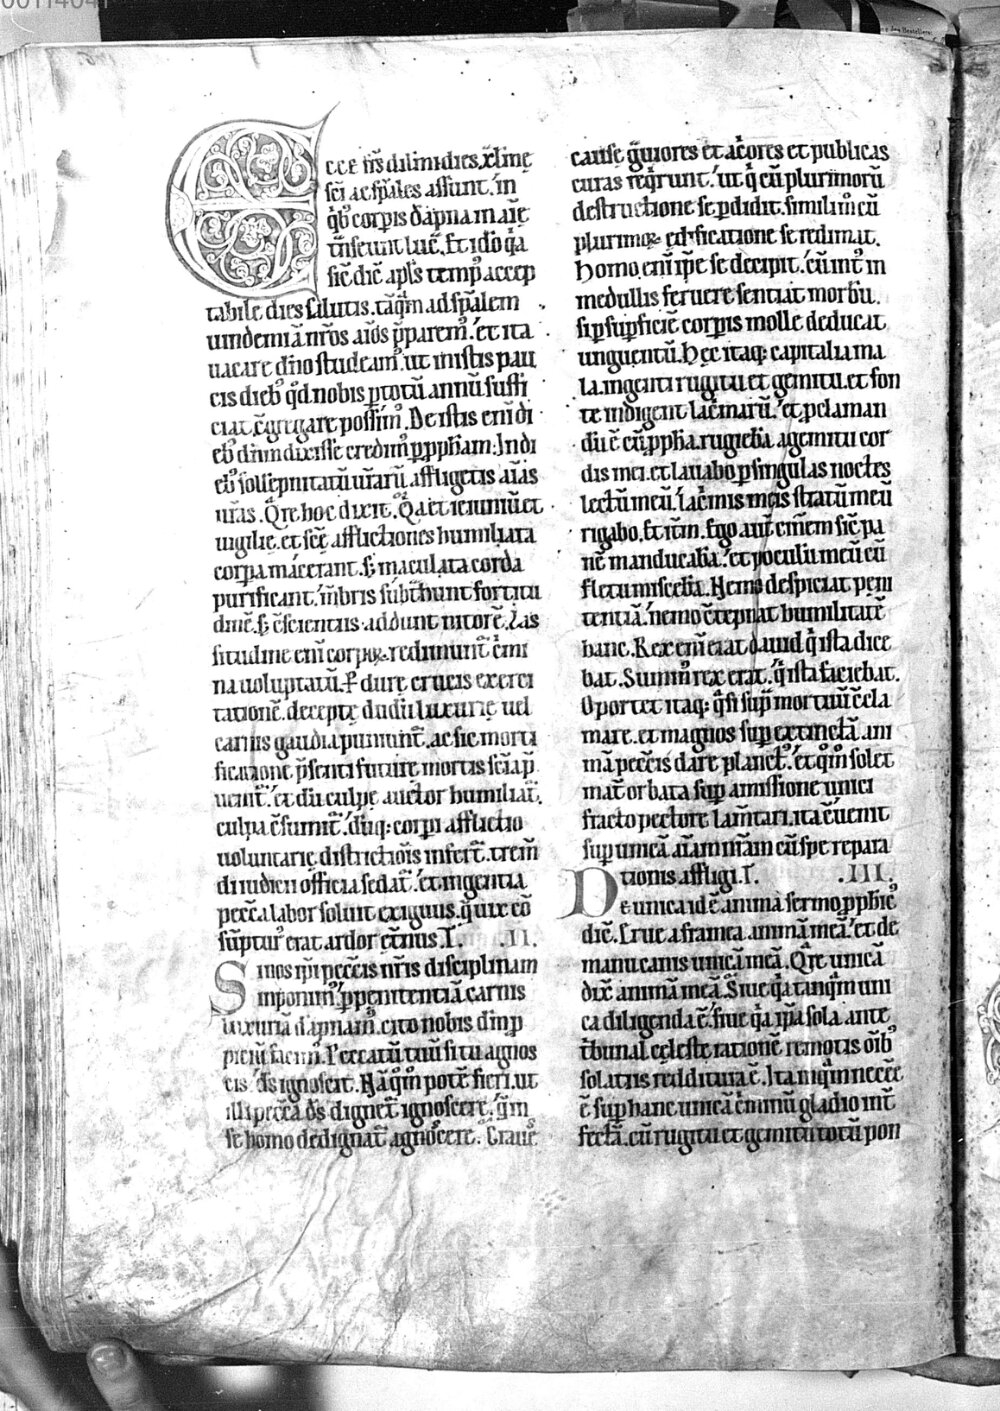 Ecce frs̄ dilm̄i dies xl̄me
sc̄i ac sp̄ales assunt. in
qib; corpis dāpna in aīe
t̄nseunt lucē. Et idō q̄a
sic̄ dic̄ apl̄s temp; accep
tabile dies salutis. tāq̄m ad sp̄alem
uindemiā nr̄os aīos p̄parem;. et ita
uacare dn̄o studeam;. ut in istis pau
cis dieb; qd̄ nobis p totū annū suffi
ciat. c̄gregare possim;. De istis eni di
eb; dn̄m dixisse credim; p ppham. In di
eb; sollepnitatū ur̄arū affligetis aīas
ur̄as. Qr̄e hoc dixit. Q̄a et ieiuniū et
uigilie. et sc̄e afflictiones humiliata
corpa macerant. s; maculata corda
purificant. mēbris subt̄hunt fortitu
dinē. s; c̄scientiis addunt nitorē. Las
situdine eni corpoꝝ redimunt̄ c̄mi
na uoluptatū. Et dure crucis exerci
tatione. decepte dudū luxurie uel
carnis gaudia puniunt̄. ac sic morti
ficatione p̄senti future mortis sn̄ia p̄
uenit̄. et dū culpe auctor humiliat̄.
culpa c̄sumit̄. dūq; corpi afflictio
uoluntarie districtiōis infert̄. trem̄
di iudicii offensa sedat̄. et ingentia
pecc̄a labor soluit exiguus. q̄ uix cō
sūptur; erat ardor et̄nus. T. .II.
Si nos ip̄i pecc̄is nr̄is disciplinam
inponim;. p penitentiā carnis
luxuriā dāpnam;. cito nobis dm̄ p
piciū facim;. Peccatū tuū si tu agnos
cis. ds̄ ignoscit. Nāq̄m potē fieri. ut
illi pecc̄a ds̄ dignet̄ ignoscere. q̄m
se homo dedignat̄ agnoscere. Graue
cause gȗiores et acōres et publicas
curas req̄runt. ut q̄ cū plurimorū
destructione se pdidit. simili m; cū
plurimoꝝ edificatione se redimat.
Homo eni ip̄e se decipit. cū int; in
medullis feruere sentiat morbū.
si p sup̄ficiē corpis molle deducat
unguentū. Hec itaq; capitalia ma
la. ingenti rugitu et gemitu. et fon
te indigent lac̄marū. et p claman
dū ē cū ppha. rugiebā a gemitu cor
dis mei. et lauabo p singulas noctes
lectū meū. lac̄mis meis stratū meū
rigabo. Et itm̄. Ego aut̄ cinerem sic̄ pa
nē manducabā. et poculū meū cū
fletu miscebā. Nemo despiciat peni
tentiā. nemo c̄tepnat humilitatē
hanc. Rex eni erat dauid q̄ ista dice
bat. Summ; rex erat. q̄ ista faciebat.
Oportet itaq; q̄si sup̄ mortuū c̄cla
mare. et magnos sup extinctā ani
mā pecc̄is dare planct;. et q̄m solet
mat̄ orbata sup amissione unici
fracto pectore lam̄tari. ita c̄uenit
sup unicā aīam nr̄am cū spe repara
tionis affligi. T. .III.
De unica id ē anima sermo pphic;
dic̄. Erue a framea animā meā. et de
manu canis unicā meā. Qr̄e unicā
dix̄ animā meā. Siue q̄a tanq̄m uni
ca diligenda ē. siue q̄a ip̄a sola ante
t̄bunal celeste rationē remotis oīb;
solatiis redditura ē. Itaniq̄m necēe
ē sup hanc unicā c̄minū gladio int̄
fectā. cū rugitu et gemitu totū pon